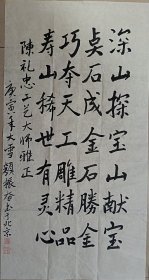 深山探宝山献宝
点石成金石勝金
巧夺天工雕精品
寿山稀世有灵心
陳礼忠工艺大师雅正
庚寅年大雪 于北京